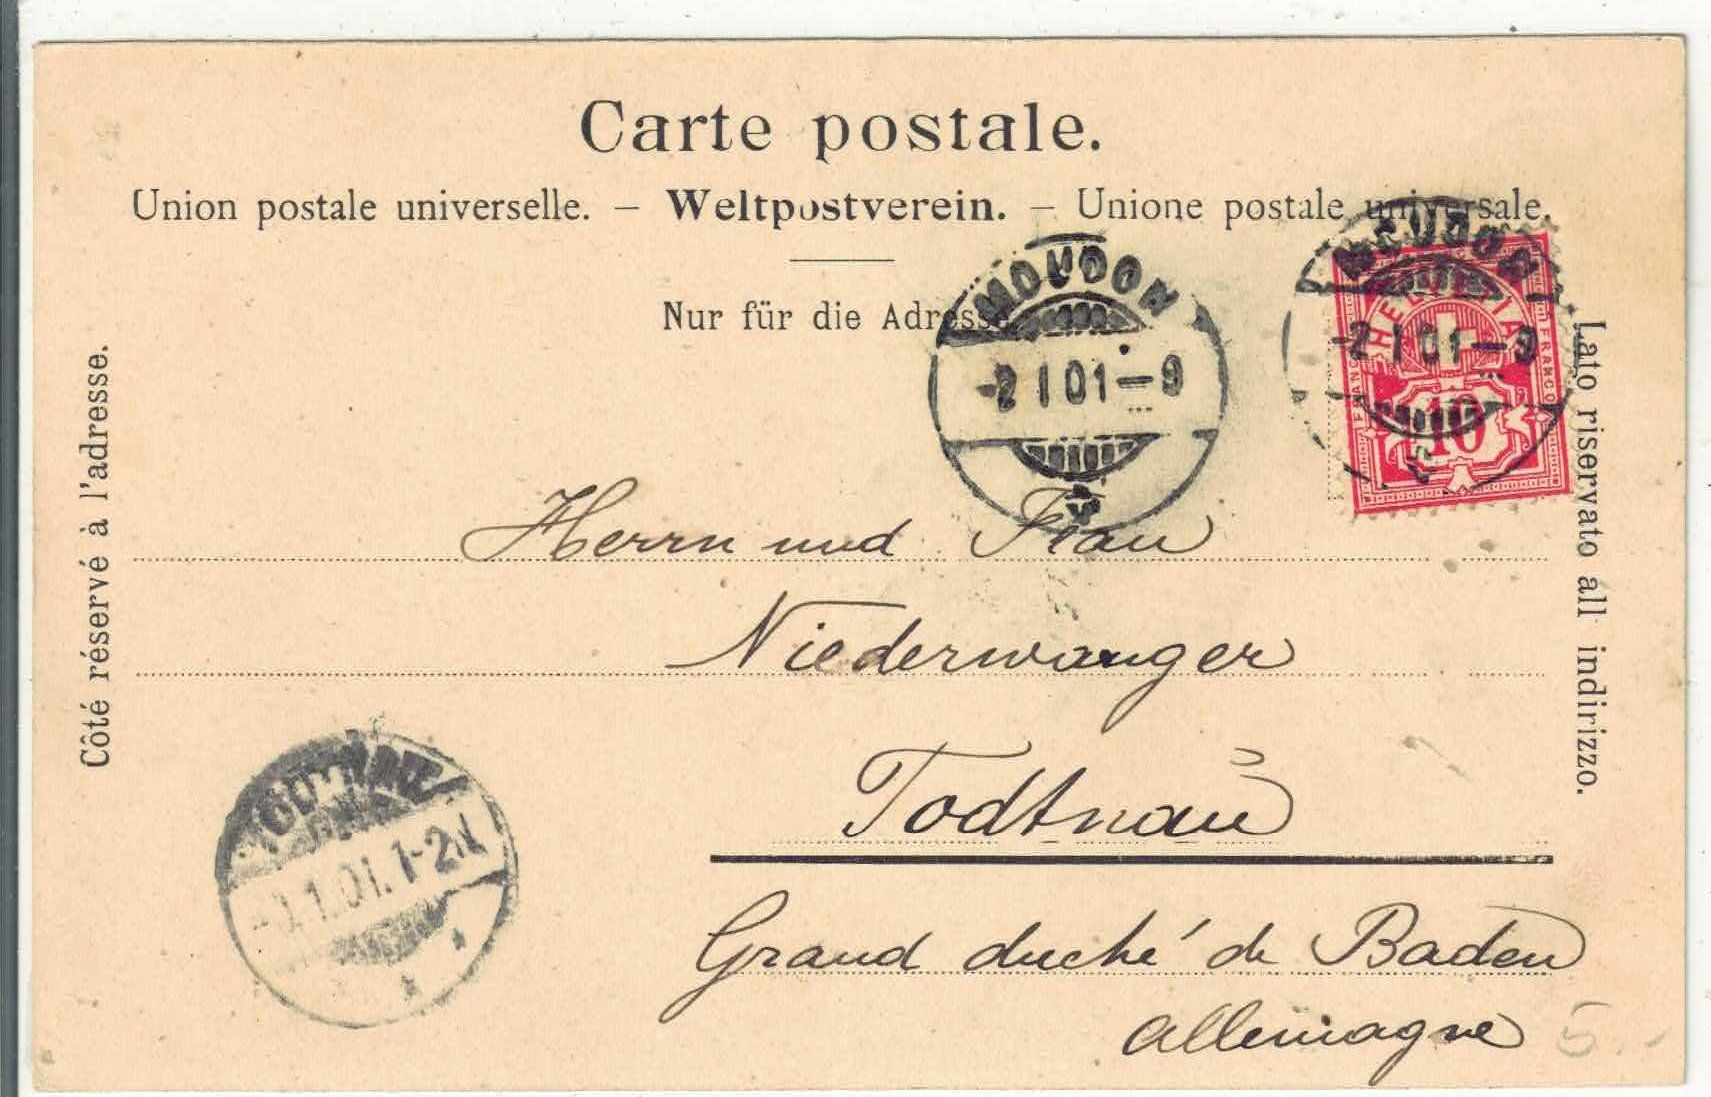 Carte postale.
Union postale universelle. – Weltpostverein. – Unione postale universale.
Nur für die Adresse.
Côté réservé à l'adresse.
Lato riservato all indirizzo.
MOUDON
-2 I 01 – 9
MOUDON
-2 I 01 – 9
HELVETIA
FRANCO
FRANCO
10
Herrn und Frau
Niederwanger
Todtnau
Grand duché de Baden
Allemagne
1.01.1-2N
5.-